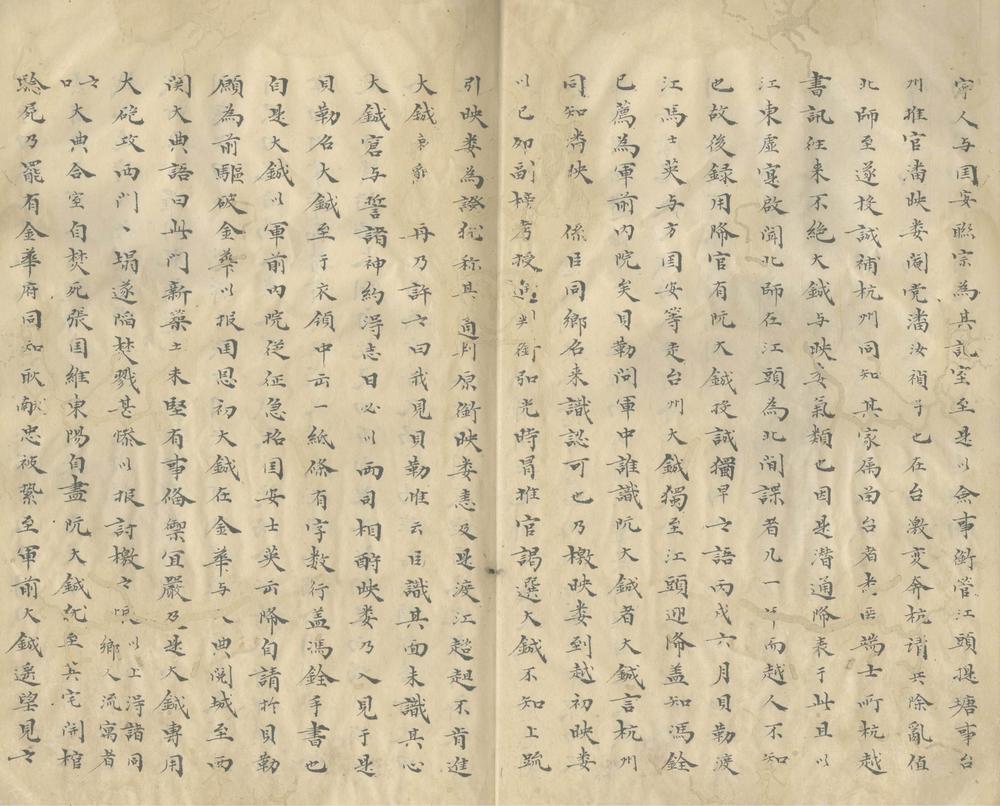 寧人与国安聮宗為其記室至是以僉事銜管江頭提塘事台
州推官潘映娄闽党潘汝禎子也在台激变奔杭谓共除亂值
北师至遂投誠補杭州同知其家属留台者赤匠端士所杭越
書訊往来不絶大鋮与映娄氣類也因是潜通降表于此且以
江東虛寔啟聞北师在江頭為北间諜者凡一年而越人不知
也故後録用降官有阮大鋮投誠獨早之語丙戌六月貝勒渡
江馬士英与方国安等走台州大鋮獨至江頭迎降盖知馮銓
已薦為軍前内院矣貝勒问軍中誰識阮大鋮者大鋮言杭州
同知潘映 係臣同鄉名来識認可也乃檄映娄到越初映娄
以已卯副榜考授判銜弘光時冒推官謁選大鋮不知上疏
引映娄為證犹称其通判原銜映娄恚及是渡江趑趄不肯進
大鋮 再乃許之曰我見貝勒惟云臣識其面未識其心
大鋮窘与誓諸神約淂志日必以兩司相酧映娄乃入見于是
貝勒名大鋮至于衣領中出一紙條有字数行盖馮銓手書也
自是大鋮以軍前内院从征急招国安士英出降自請於貝勒
願為前驅破金華以报国恩初大鋮在金華与大典阅城至西
関大典語曰此門新築土未堅有事俻禦宜嚴乃是大鋮專用
大砲攻西門門塌遂陷焚戮甚慘以报討檄之恨以上淂諸同鄉人流寓者
大典合室自焚死張国維東陽自盡阮大鋮犹至其宅開棺
驗死乃罷有金華府同知耿献忠被縶至軍前大鋮遙望見之